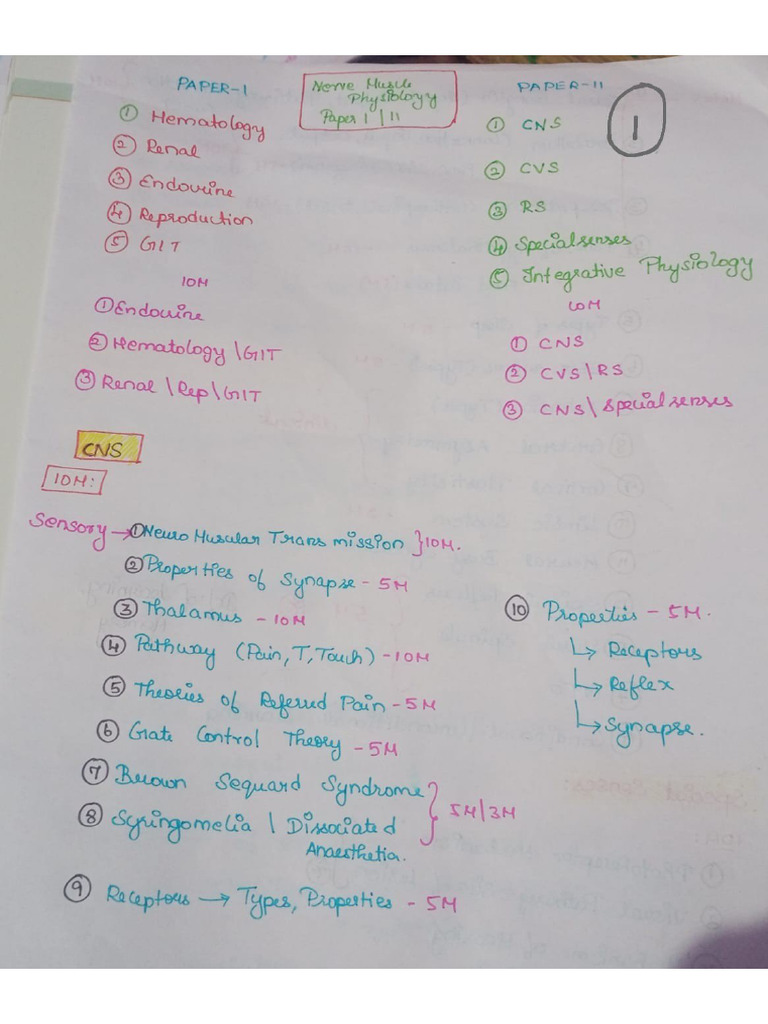 PAPER-I
Nerve Muscle
Physiology
Paper I | II
PAPER-II
1
① Hematology
② Renal
③ Endocrine
④ Reproduction
⑤ GIT
10M
① Endocrine
② Hematology \ GIT
③ Renal \ Rep \ GIT
① CNS
② CVS
③ RS
④ Special senses
⑤ Integrative Physiology
10M
① CNS
② CVS \ RS
③ CNS \ Special senses
CNS
10M:
Sensory → ① Neuro Muscular Transmission } 10M.
② Properties of Synapse - 5M
③ Thalamus - 10M
④ Pathway (Pain, T, Touch) - 10M
⑤ Theories of Referred Pain - 5M
⑥ Gate Control Theory - 5M
⑦ Brown Sequard Syndrome
⑧ Syringomelia | Dissociated
Anaesthetia.
} 5M | 3M
⑨ Receptors → Types, Properties - 5M
⑩ Properties - 5M.
↳ Receptors
↳ Reflex
↳ Synapse.